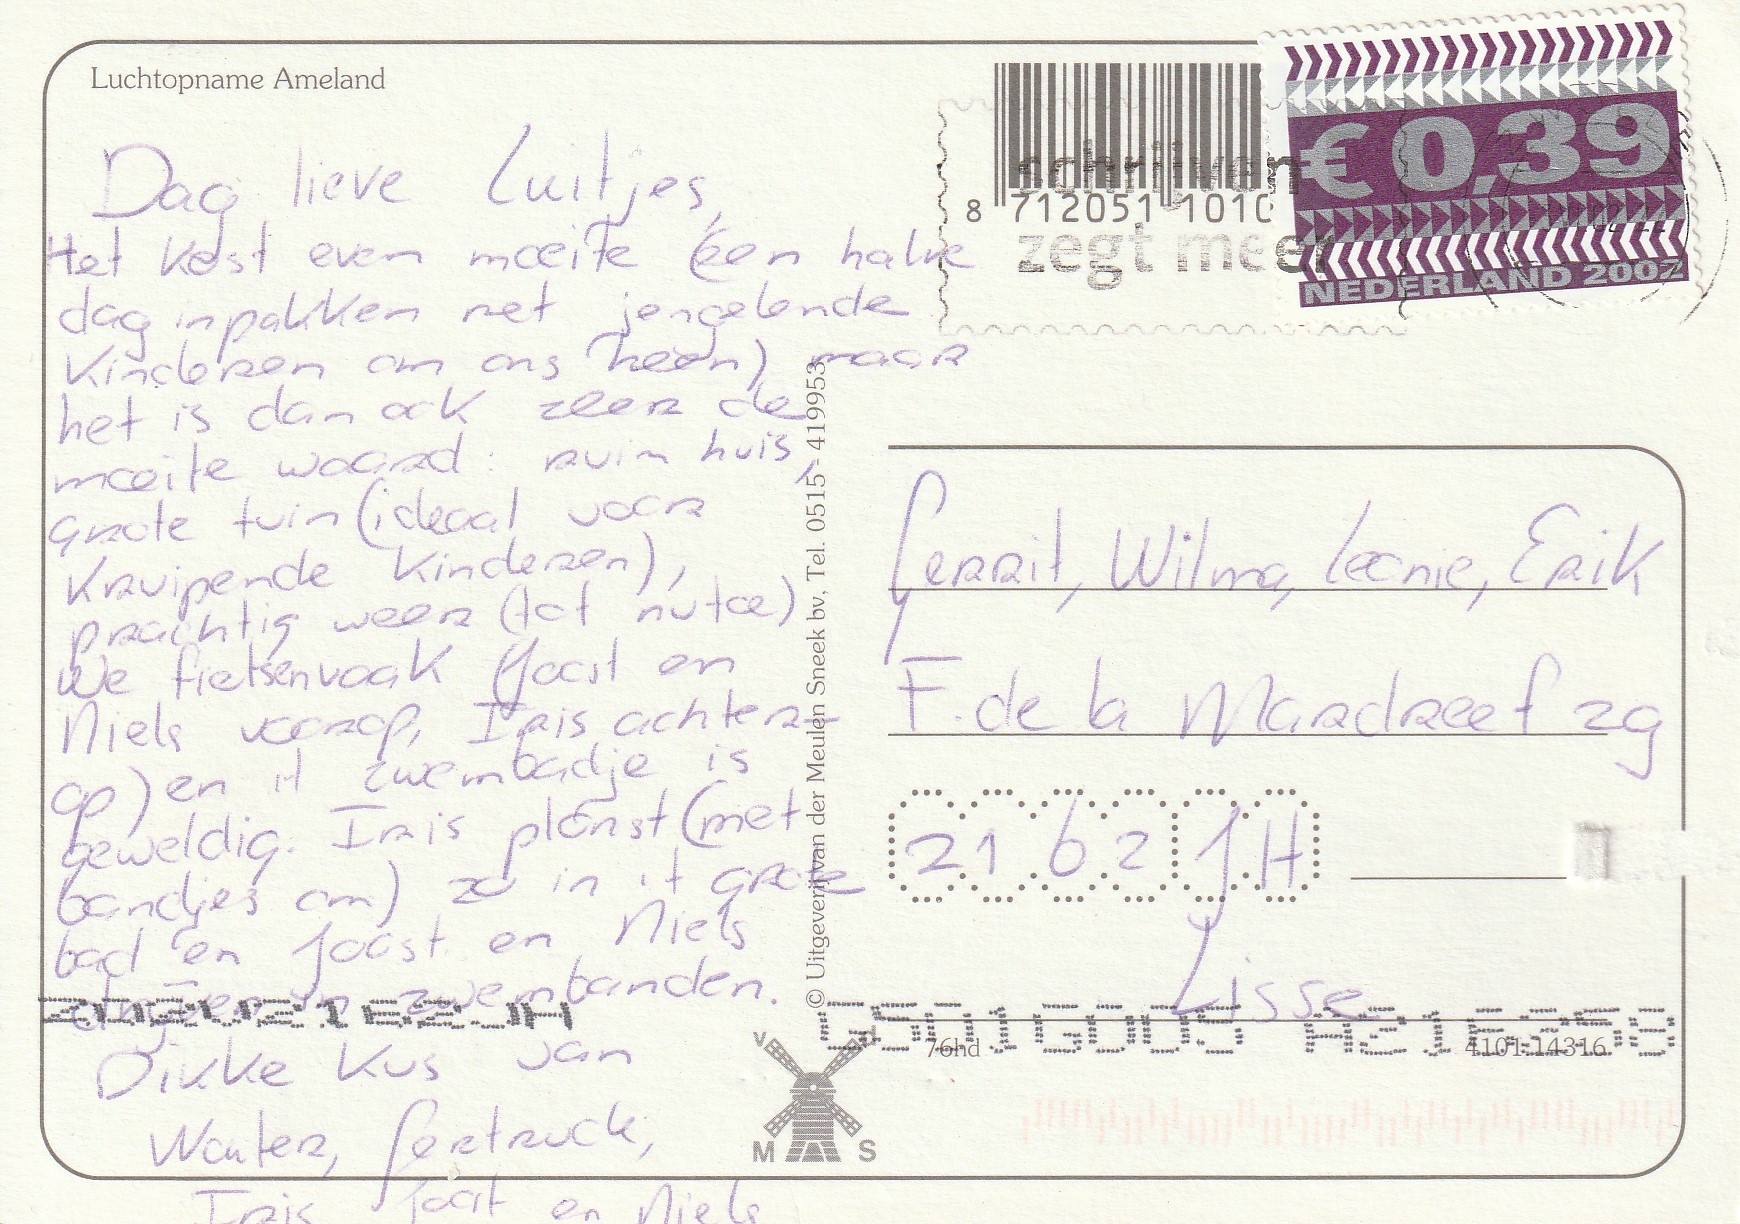 Luchtopname Ameland
Dag lieve Luitjes,
Het kost even moeite (een halve
dag inpakken met jengelende
kinderen om ons heen) maar
het is dan ook zeer de
moeite waard: ruim huis,
grote tuin (ideaal voor
kruipende kinderen),
prachtig weer (tot nu toe)
We fietsen vaak (Joost en
Niels voorop, Iris achter-
op) en 't zwembadje is
geweldig. Iris plonst (met
bandjes om) zo in 't grote
bad en Joost en Niels
drijven in zwembanden.
Dikke kus van
Wouter, Gertruck,
Iris Joost en Niels
© Uitgeverij van der Meulen Sneek bv, Tel. 0515 - 419953
V
M A S
8 712051 1010
schrijven
zegt meer
€ 0,39
NEDERLAND 2002
Gerrit, Wilma, Leonie, Erik
F. de la Mardreef 29
2162 JH
Lisse
76hd
4101.14316